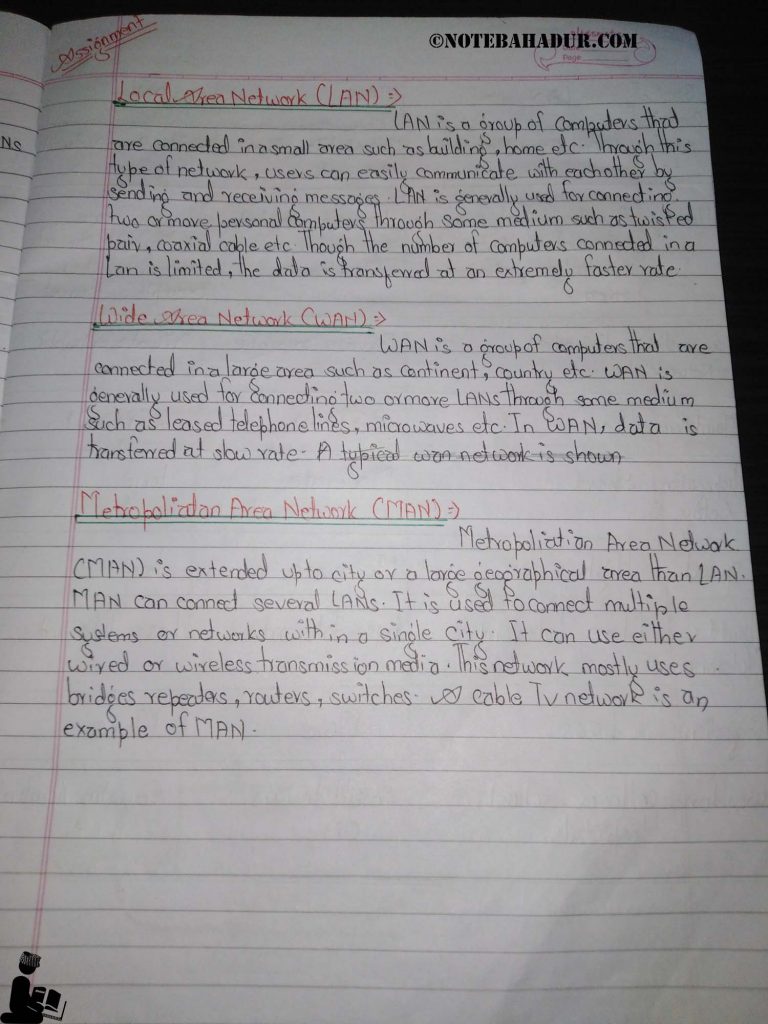 Assignment
©NOTEBAHADUR.COM
Page
NS
Local Area Network (LAN) :->
LAN is a group of computers that
are connected in a small area such as building, home etc. Through this
type of network, users can easily communicate with each other by
sending and receiving messages. LAN is generally used for connecting
two or more personal computers through some medium such as twisted
pair, coaxial cable etc. Though the number of computers connected in a
Lan is limited, the data is transferred at an extremely faster rate.
Wide Area Network (WAN) :->
WAN is a group of computers that are
connected in a large area such as continent, country etc. WAN is
generally used for connecting two or more LANs through some medium
such as leased telephone lines, microwaves etc. In WAN, data is
transferred at slow rate. A typical wan network is shown
Metropoliatan Area Network (MAN) :->
Metropoliation Area Network
(MAN) is extended upto city or a large geographical area than LAN.
MAN can connect several LANs. It is used to connect multiple
systems or networks with in a single city. It can use either
wired or wireless transmission media. This network mostly uses
bridges repeaters, routers, switches. A cable Tv network is an
example of MAN.